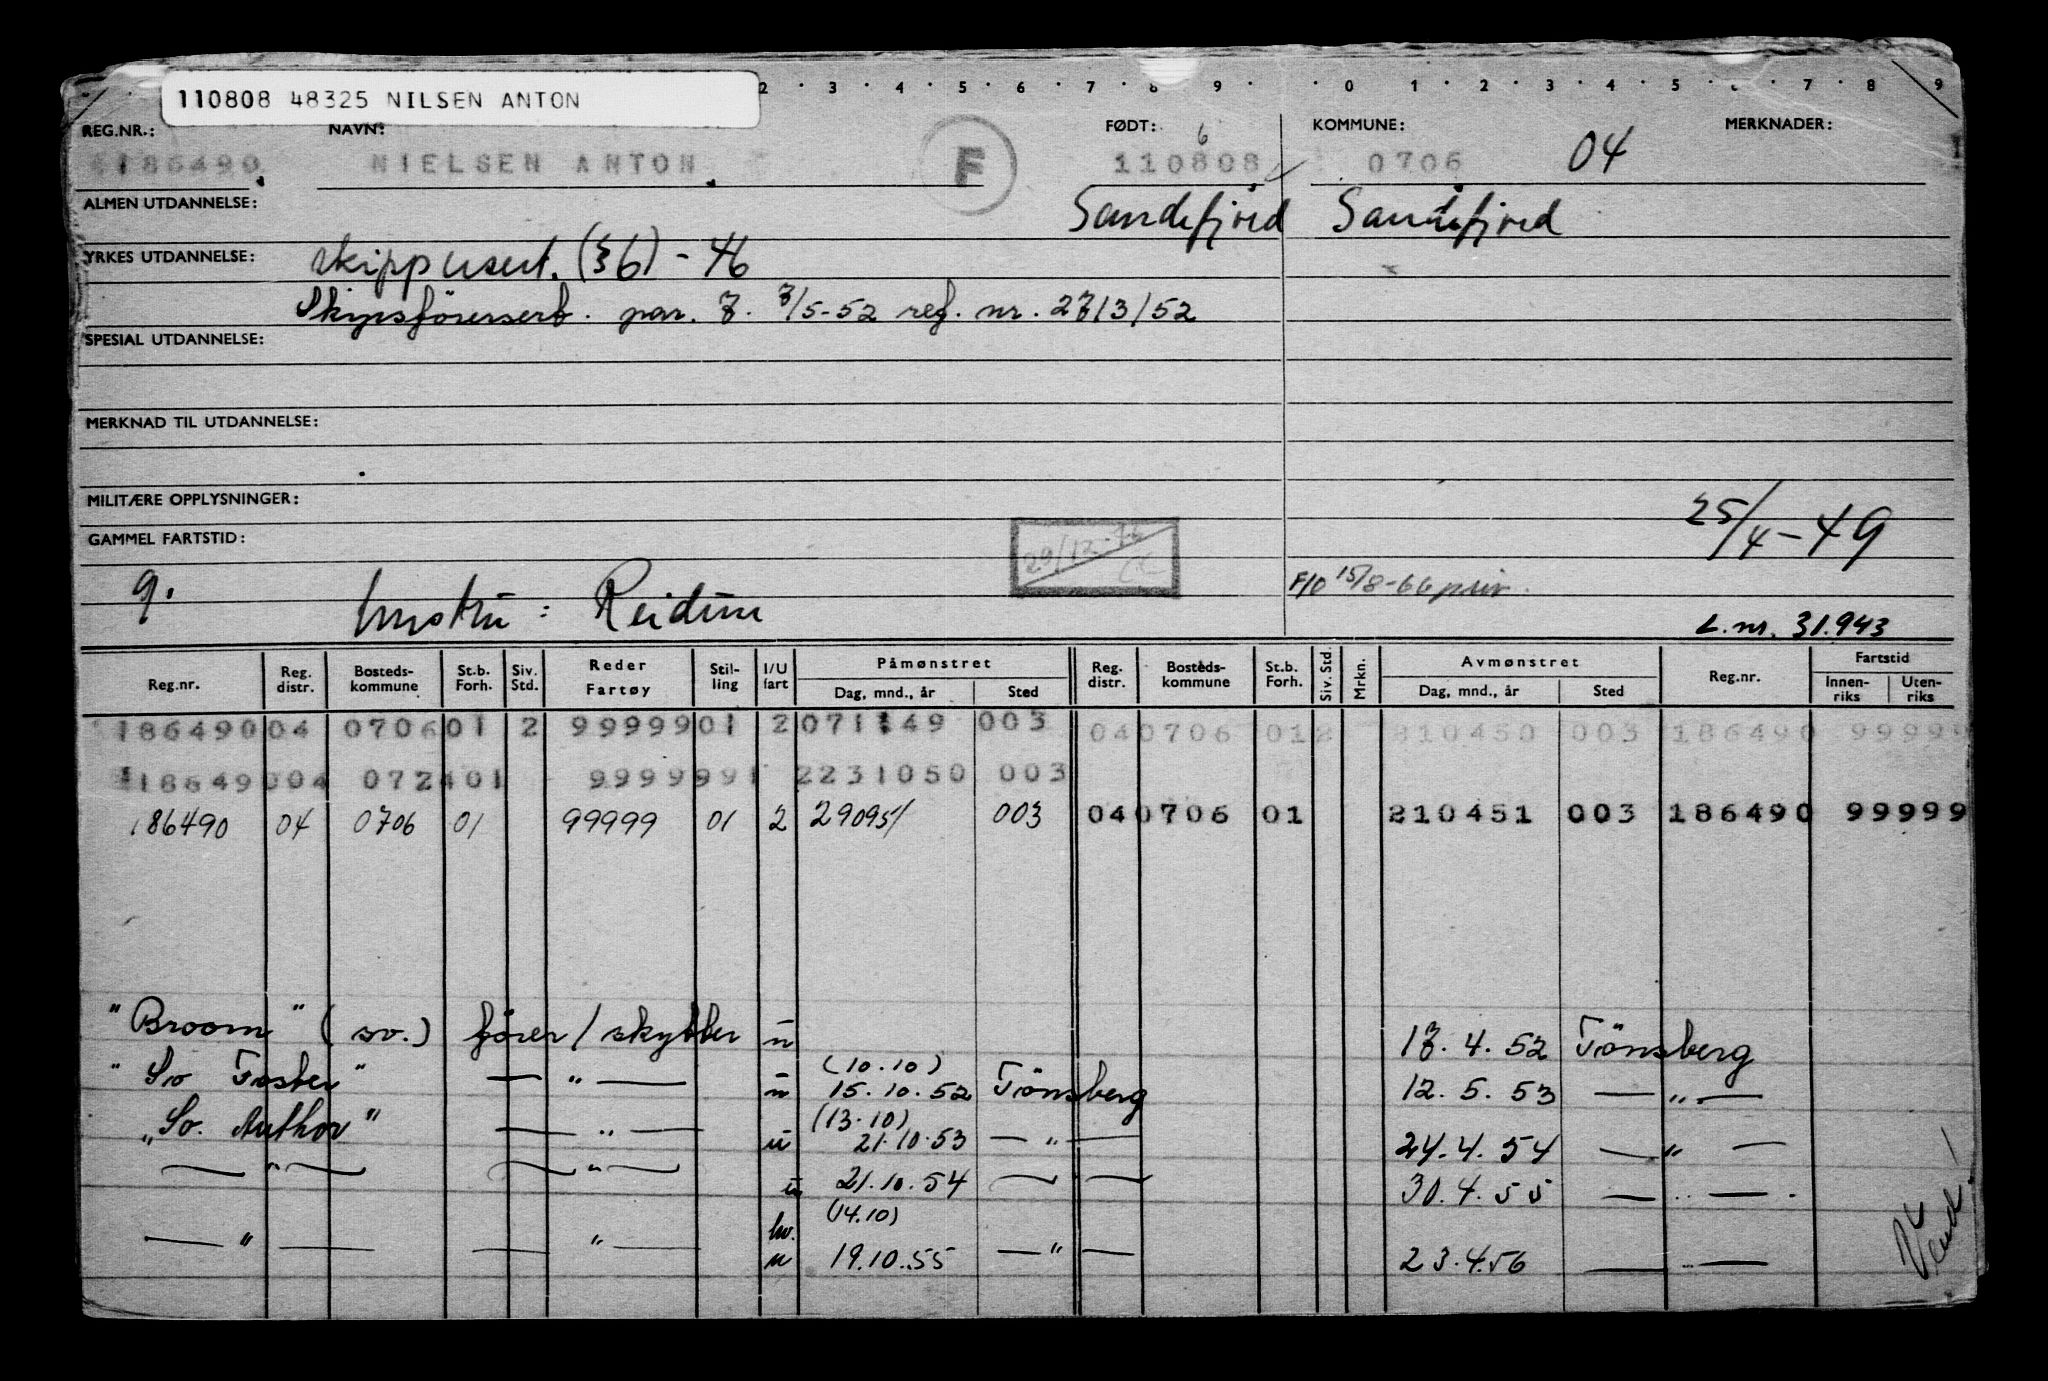 2 · 3 · 4 · 5 · 6 · 7 · 8 · 9 · · 0 · 1 · 2 · 3 · 4 · 5 · 6 · 7 · 8 · 9
110808 48325 NILSEN ANTON
REG.NR.: NAVN: FØDT: 6 KOMMUNE: MERKNADER:
186490 NIELSEN ANTON F 110808 0706 04
ALMEN UTDANNELSE: Sandefjord Sandefjord
YRKES UTDANNELSE: skippersert. (§6) - 46
Skipsförersert. par. 7. 7/5-52 ref. nr. 2713/52
SPESIAL UTDANNELSE:
MERKNAD TIL UTDANNELSE:
MILITÆRE OPPLYSNINGER: 25/4-49
GAMMEL FARTSTID: 29/12-76
F/O 15/8-66 priv.
g. hustru: Reidun L.nr. 31.943
Reg.nr. Reg. distr. Bosteds-kommune St.b. Forh. Siv. Std. Reder Fartøy Stil-ling I/U fart Påmønstret Dag, mnd., år Sted Reg. distr. Bosteds-kommune St.b. Forh. Siv. Std. Mrkn. Avmønstret Dag, mnd., år Sted Reg.nr. Fartstid Innen-riks Uten-riks
186490 04 0706 01 2 99999 01 2 071149 003 04 0706 01 2 210450 003 186490 99999
186490 04 0724 01 99999 91 2 231050 003
186490 04 0706 01 99999 01 2 290951 003 04 0706 01 210451 003 186490 99999
"Broom" (sv.) fører/skytter u 17.4.52 Tönsberg
(10.10)
"So Foster" — " — u 15.10.52 Tönsberg 12.5.53 — " —
(13.10)
"So. Author" — " — u 21.10.53 — " — 24.4.54 — " —
— " — — " — u 21.10.54 — " — 30.4.55 — " —
(14.10)
hv.
— " — — " — u 19.10.55 — " — 23.4.56 — " —
Vend!